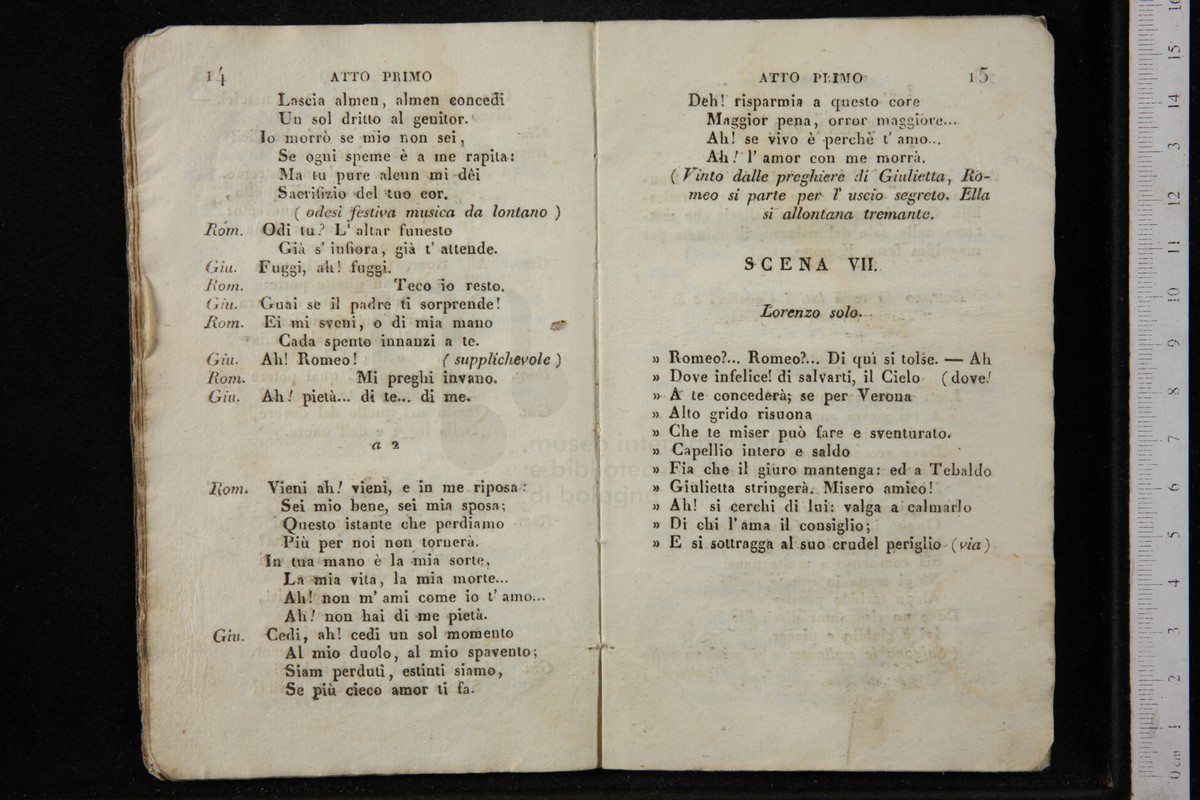 14 ATTO PRIMO
Lascia almen, almen concedi
Un sol dritto al genitor.
Io morrò se mio non sei,
Se ogni speme è a me rapita:
Ma tu pure alcun mi dêi
Sacrifizio del tuo cor.
( odesi festiva musica da lontano )
Rom. Odi tu? L' altar funesto
Già s' infiora, già t' attende.
Giu. Fuggi, ah! fuggi.
Rom. Teco io resto.
Giu. Guai se il padre ti sorprende!
Rom. Ei mi sveni, o di mia mano
Cada spento innanzi a te.
Giu. Ah! Romeo! ( supplichevole )
Rom. Mi preghi invano.
Giu. Ah! pietà... di te... di me.
a 2
Rom. Vieni ah! vieni, e in me riposa:
Sei mio bene, sei mia sposa;
Questo istante che perdiamo
Più per noi non tornerà.
In tua mano è la mia sorte,
La mia vita, la mia morte...
Ah! non m' ami come io t' amo...
Ah! non hai di me pietà.
Giu. Cedi, ah! cedi un sol momento
Al mio duolo, al mio spavento;
Siam perduti, estinti siamo,
Se più cieco amor ti fa.
ATTO PRIMO 15
Deh! risparmia a questo core
Maggior pena, orror maggiore...
Ah! se vivo è perchè t' amo...
Ah! l' amor con me morrà.
( Vinto dalle preghiere di Giulietta, Ro-
meo si parte per l' uscio segreto. Ella
si allontana tremante.
SCENA VII.
Lorenzo solo.
» Romeo?... Romeo?... Di quì si tolse. — Ah
» Dove infelice! di salvarti, il Cielo (dove!
» A te concederà; se per Verona
» Alto grido risuona
» Che te miser può fare e sventurato.
» Capellio intero e saldo
» Fia che il giuro mantenga: ed a Tebaldo
» Giulietta stringerà. Misero amico!
» Ah! si cerchi di lui: valga a calmarlo
» Di chi l'ama il consiglio;
» E si sottragga al suo crudel periglio (via)
museo internazionale
e biblioteca
di bologna
0 cm 1 2 3 4 5 6 7 8 9 10 11 12 13 14 15 16